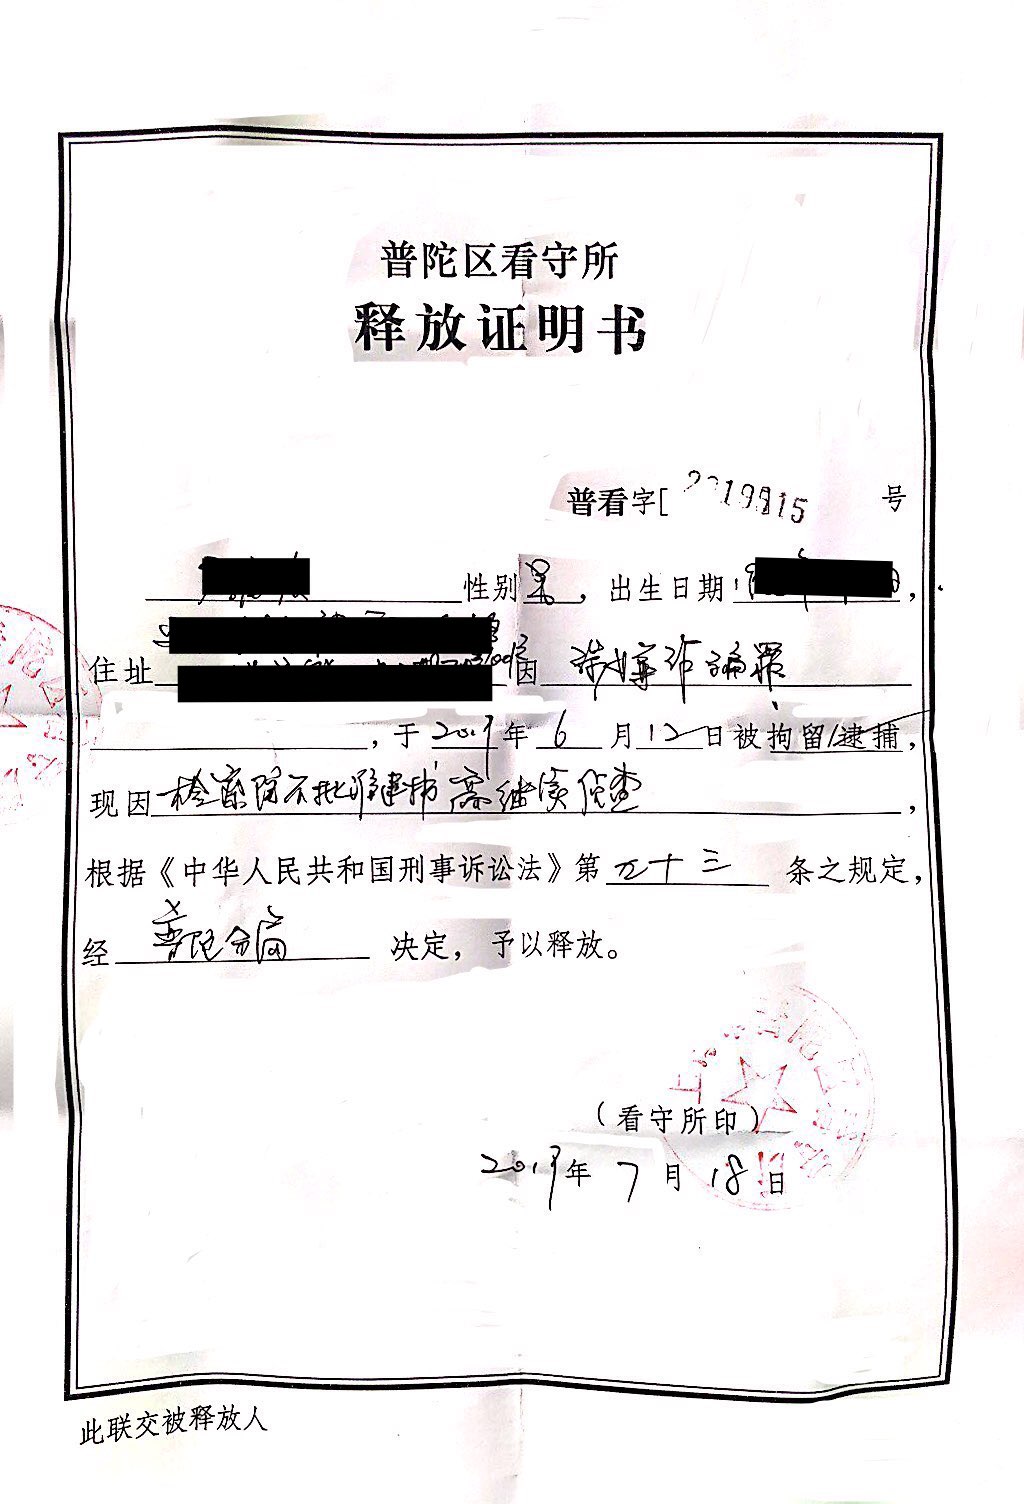 普陀区看守所
释放证明书
普看字[2019]915 号
性别男，出生日期
住址 因 涉嫌诈骗罪
，于2019年6月12日被拘留/逮捕，
现因检察院不批准逮捕需继续侦查，
根据《中华人民共和国刑事诉讼法》第 九十三 条之规定，
经 普陀分局 决定，予以释放。
（看守所印）
2019年7月18日
此联交被释放人